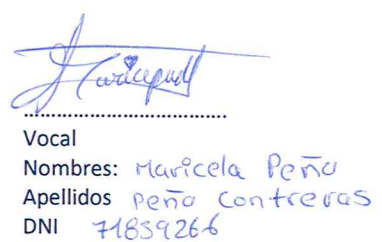 ..................................
Vocal
Nombres: Maricela Peña
Apellidos Peña Contreras
DNI 71859266